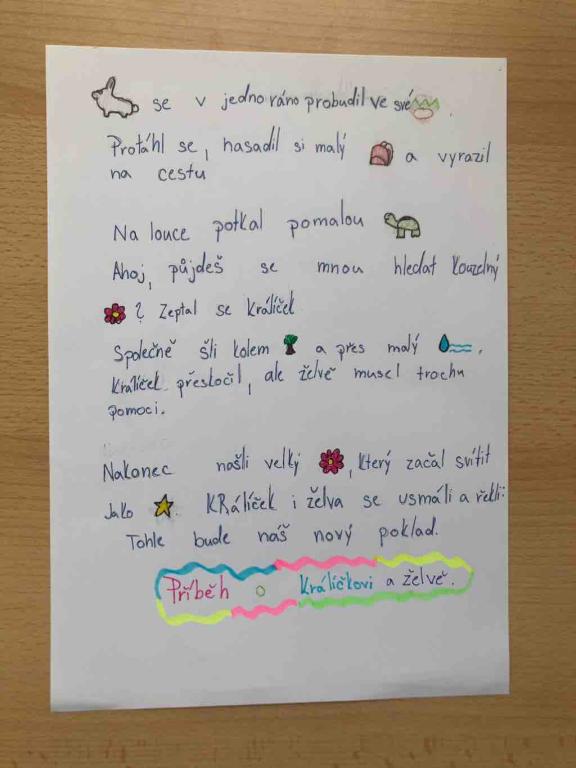 se v jedno ráno probudil ve své .
Protáhl se, nasadil si malý a vyrazil
na cestu
Na louce potkal pomalou
Ahoj, půjdeš se mnou hledat kouzelný
? Zeptal se Králíček
Společně šli kolem a přes malý .
Králíček přeskočil, ale želvě musel trochu
pomoci.
Nakonec našli velký , který začal svítit
Jako . KRálíček i želva se usmáli a řekli:
Tohle bude náš nový poklad.
Příběh o Králíčkovi a želvě.